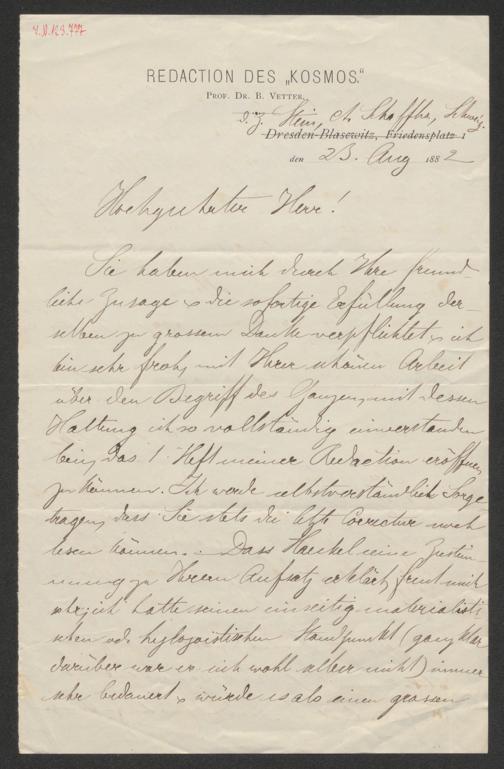 I.N.129.777
REDACTION DES „KOSMOS.“
PROF. DR. B. VETTER,
d. Z. Stein, Ct. Schaffhn, Schweiz.
Dresden-Blasewitz, Friedensplatz 1
den 23. Aug 1882
Hochgeehrter Herr!
Sie haben mich durch Ihre freund-
liche Zusage & die sofortige Erfüllung der-
selben zu grossem Danke verpflichtet, & ich
bin sehr froh, mit Ihrer schönen Arbeit
über den Begriff des Ganzen, mit dessen
Haltung ich so vollständig einverstanden
bin, das 1 Heft meiner Redaction eröffnen
zu können. Ich werde selbstverständlich Sorge
tragen, dass Sie stets die letzte Correctur noch
lesen können. Dass Haeckel seine Zustim-
mung zu Ihrem Aufsatz erklärt, freut mich
sehr; ich hatte seinen einseitig materialisti-
schen od. hylozoistischen Standpunkt (ganz klar
darüber war er sich wohl selber nicht) immer
sehr bedauert & würde es als einen grossen